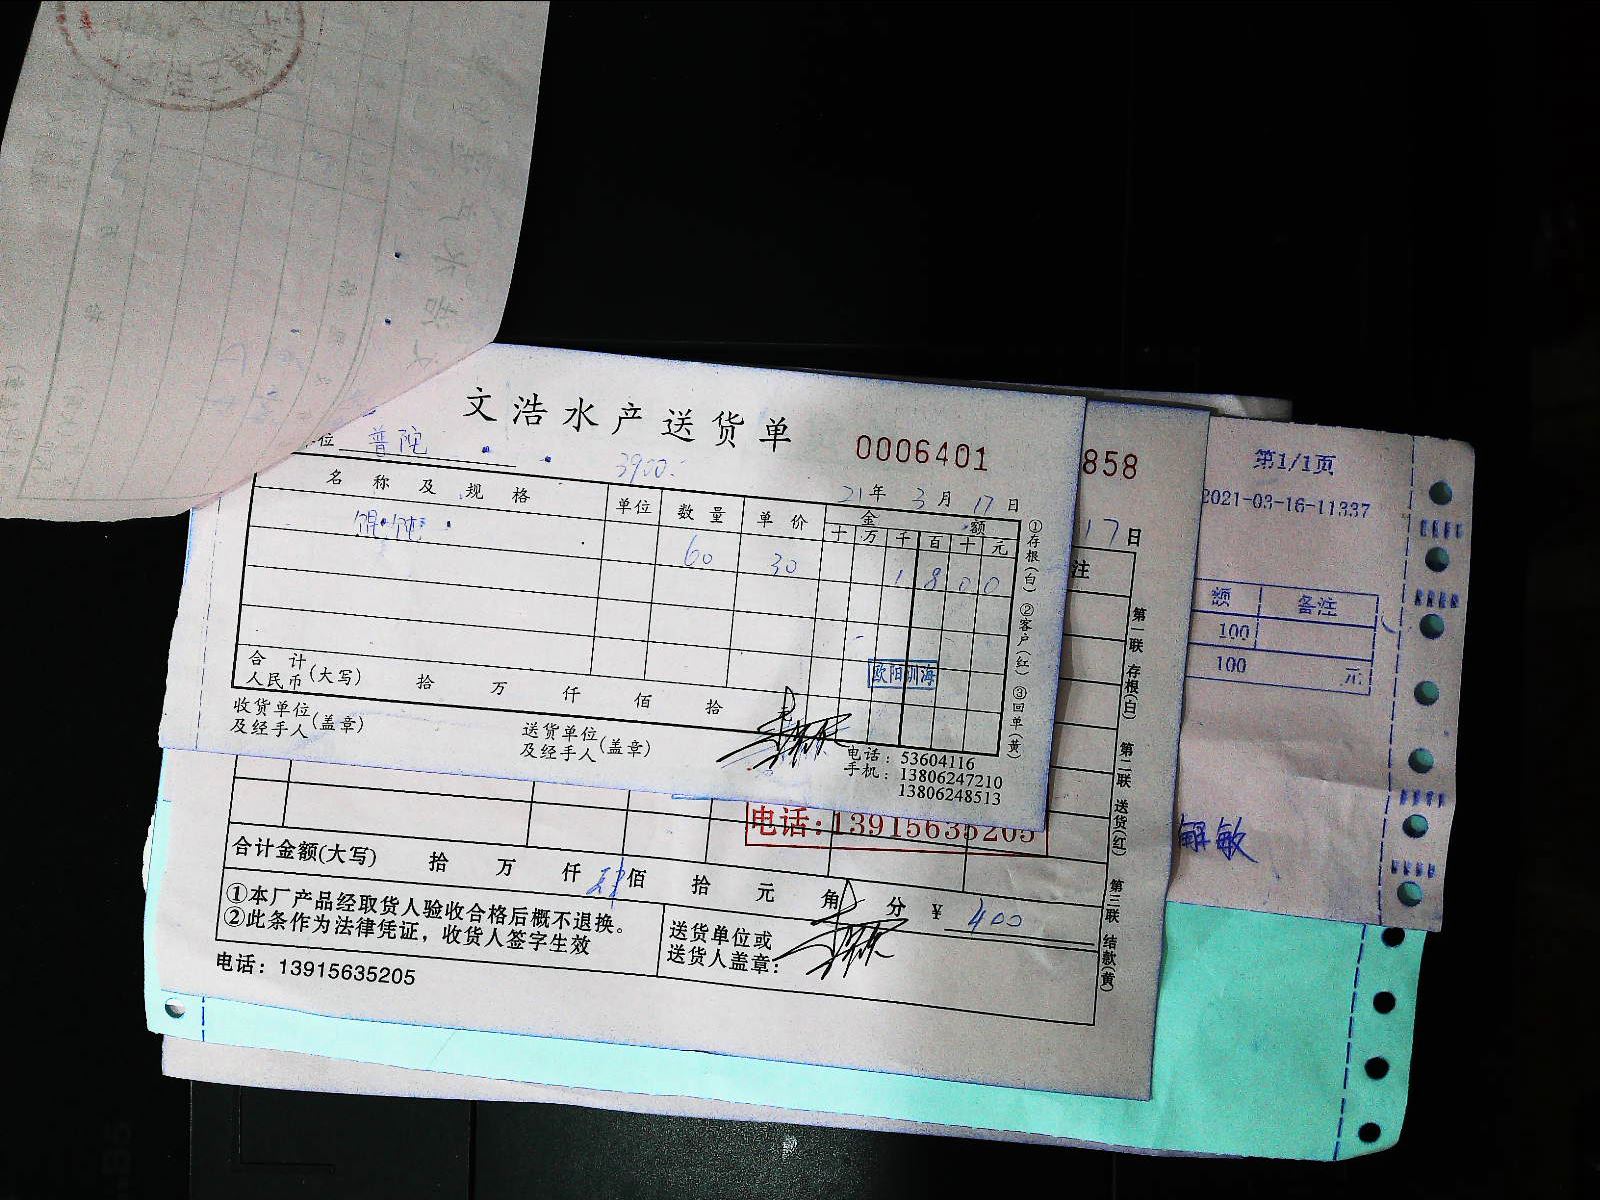 文浩水产送货单
0006401
位 普陀
3900
21年3月17日
名称及规格 单位 数量 单价 金额
十万千百十元
馄饨 60 30 1800
合计
人民币(大写) 拾 万 仟 佰 拾 元
欧阳训海
收货单位
及经手人(盖章)
送货单位
及经手人(盖章)
电话:53604116
手机:13806247210
13806248513
①存根(白) ②客户(红) ③回单(黄)
858
17日
注
第一联 存根(白) 第二联 送货(红) 第三联 结款(黄)
电话:13915635205
合计金额(大写) 拾 万 仟 肆佰 拾 元 角 分 ¥ 400
①本厂产品经取货人验收合格后概不退换。
②此条作为法律凭证，收货人签字生效
送货单位或
送货人盖章:
电话: 13915635205
第1/1页
2021-03-16-11337
额 备注
100
100 元
解敏